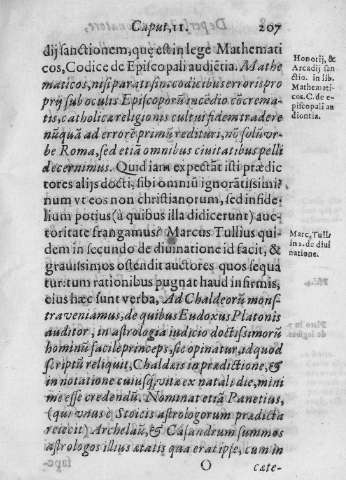 Caput, 11. 207
dij sanctionem, quę est in lege Mathemati
cos, Codice de Episcopali audiētia. Mathe
maticos, nisi parati sin, codicibus erroris pro
prij sub oculis Episcoporū incēdio cōcrema-
tis, catholicæ religionis cultui fidem tradere
nūquā ad errorē primū redituri, nō solū vr-
be Roma, sed etiā omnibus ciuitatibus pelli
decernimus. Quid iam expectāt isti prædic
tores alijs docti, sibi omniū ignorātissimi?
num vt eos non christianorum, sed infide-
lium potius (à quibus illa didicerunt) auc-
toritate frangamus? Marcus Tullius qui-
dem in secundo de diuinatione id facit, &
grauissimos ostendit auctores quos sequā
tur: tum rationibus pugnat haud infirmis,
eius hæc sunt verba, Ad Chaldeorū mons-
tra veniamus, de quibus Eudoxus Platonis
auditor, in astrologia iudicio doctissimorū
hominū facile princeps, sic opinatur, id quod
scriptū reliquit, Chaldæis in prædictione, &
in notatione cuiusq; vitæ ex natali die, mini
me esse credendū. Nominat etiā Panetius,
(qui vnus è Stoicis astrologorum prædicta
reiecit) Archelaū, & Casandrum summos
astrologos illius ætatis qua erat ipse, cum in
O cæte-
Honorij, &
Arcadij san
ctio. in lib.
Mathemati-
cos. C. de e-
piscopali au
dientia.
Marc. Tulli
in 2. de diui
natione.